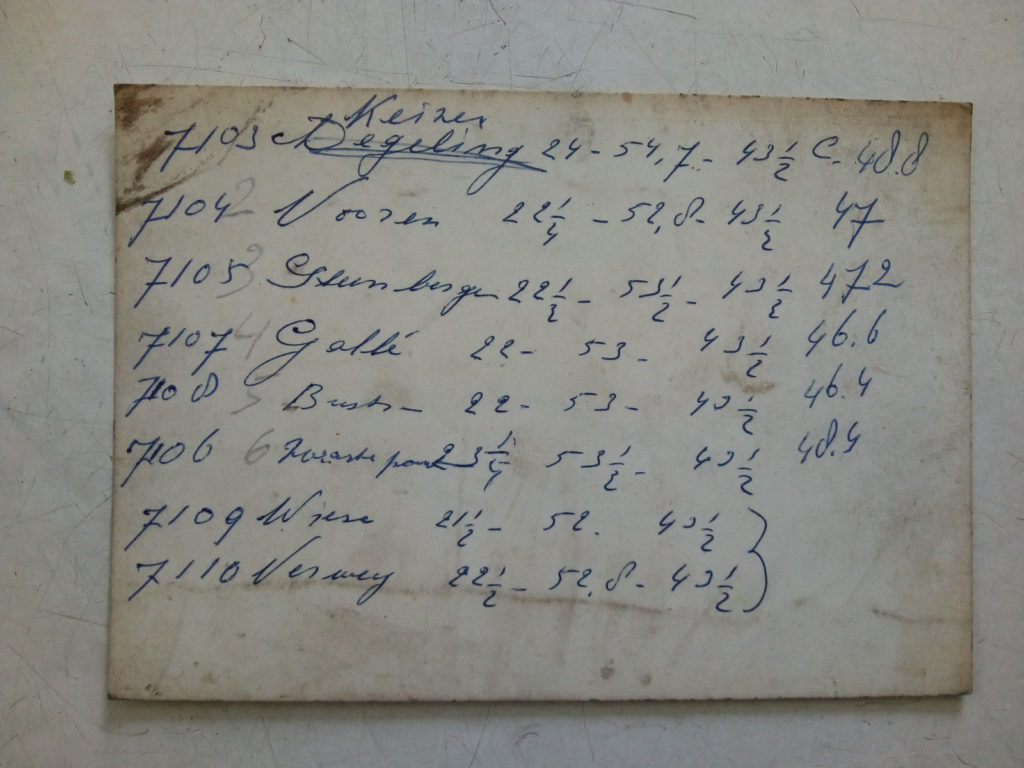 Keizer
7103 Degeling 24 - 54,7 - 43 1/2 C - 48.8
7104 2 Vooren 22 1/4 - 52,8 - 43 1/2 47
7105 3 22 1/2 - 53 1/2 - 43 1/2 47.2
7107 4 Gallé 22 - 53 - 43 1/2 46.6
7108 5 22 - 53 - 43 1/2 46.4
7106 6 23 1/4 53 1/2 - 43 1/2 48.4
7109 21 1/2 - 52. 43 1/2
7110 Verwey 22 1/2 - 52,8 - 43 1/2